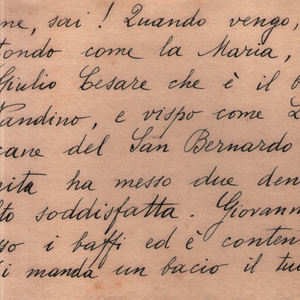 ne, sai! Quando vengo,
tondo come la Maria,
Giulio Cesare che è il b
Nandino, e vispo come L
cane del San Bernardo
nita ha messo due den
to soddisfatta. Giovann
so i baffi ed è conten
i manda un bacio il tu